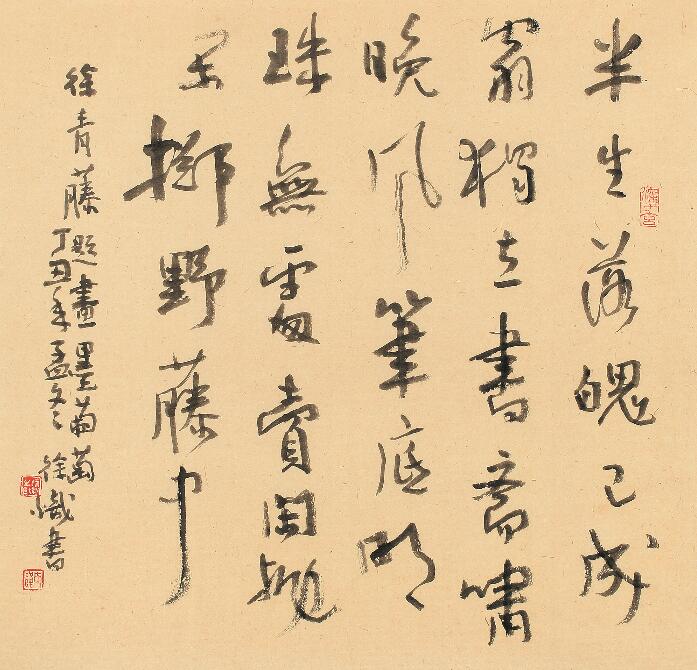 半生落魄已成
翁獨立書齋嘯
晚風筆底明
珠無處賣閑拋
閑擲野藤中
徐青藤題畫墨葡萄
丁丑年孟冬 徐書